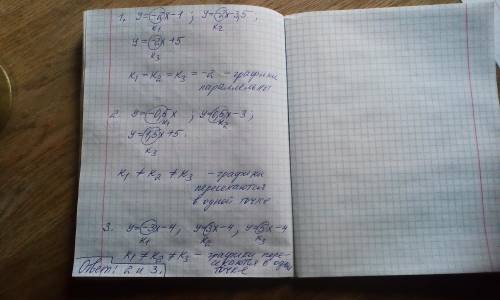 1. y=-2x-1 ; y=-2x-3,5 ,
K₁ K₂
y=-2x+5
K₃
K₁=K₂=K₃=-2 - графики
параллельны
2. y=-0,5x ; y=0,5x-3 ;
K₁ K₂
y=1,5x+5
K₃
K₁ ≠ K₂ ≠ K₃ - графики
пересекаются
в одной точке
3. y=-3x-4, y=3x-4, y=5x-4
K₁ K₂ K₃
K₁ ≠ K₂ ≠ K₃ - графики пере-
секаются в одн.
Ответ: 2 и 3. точке